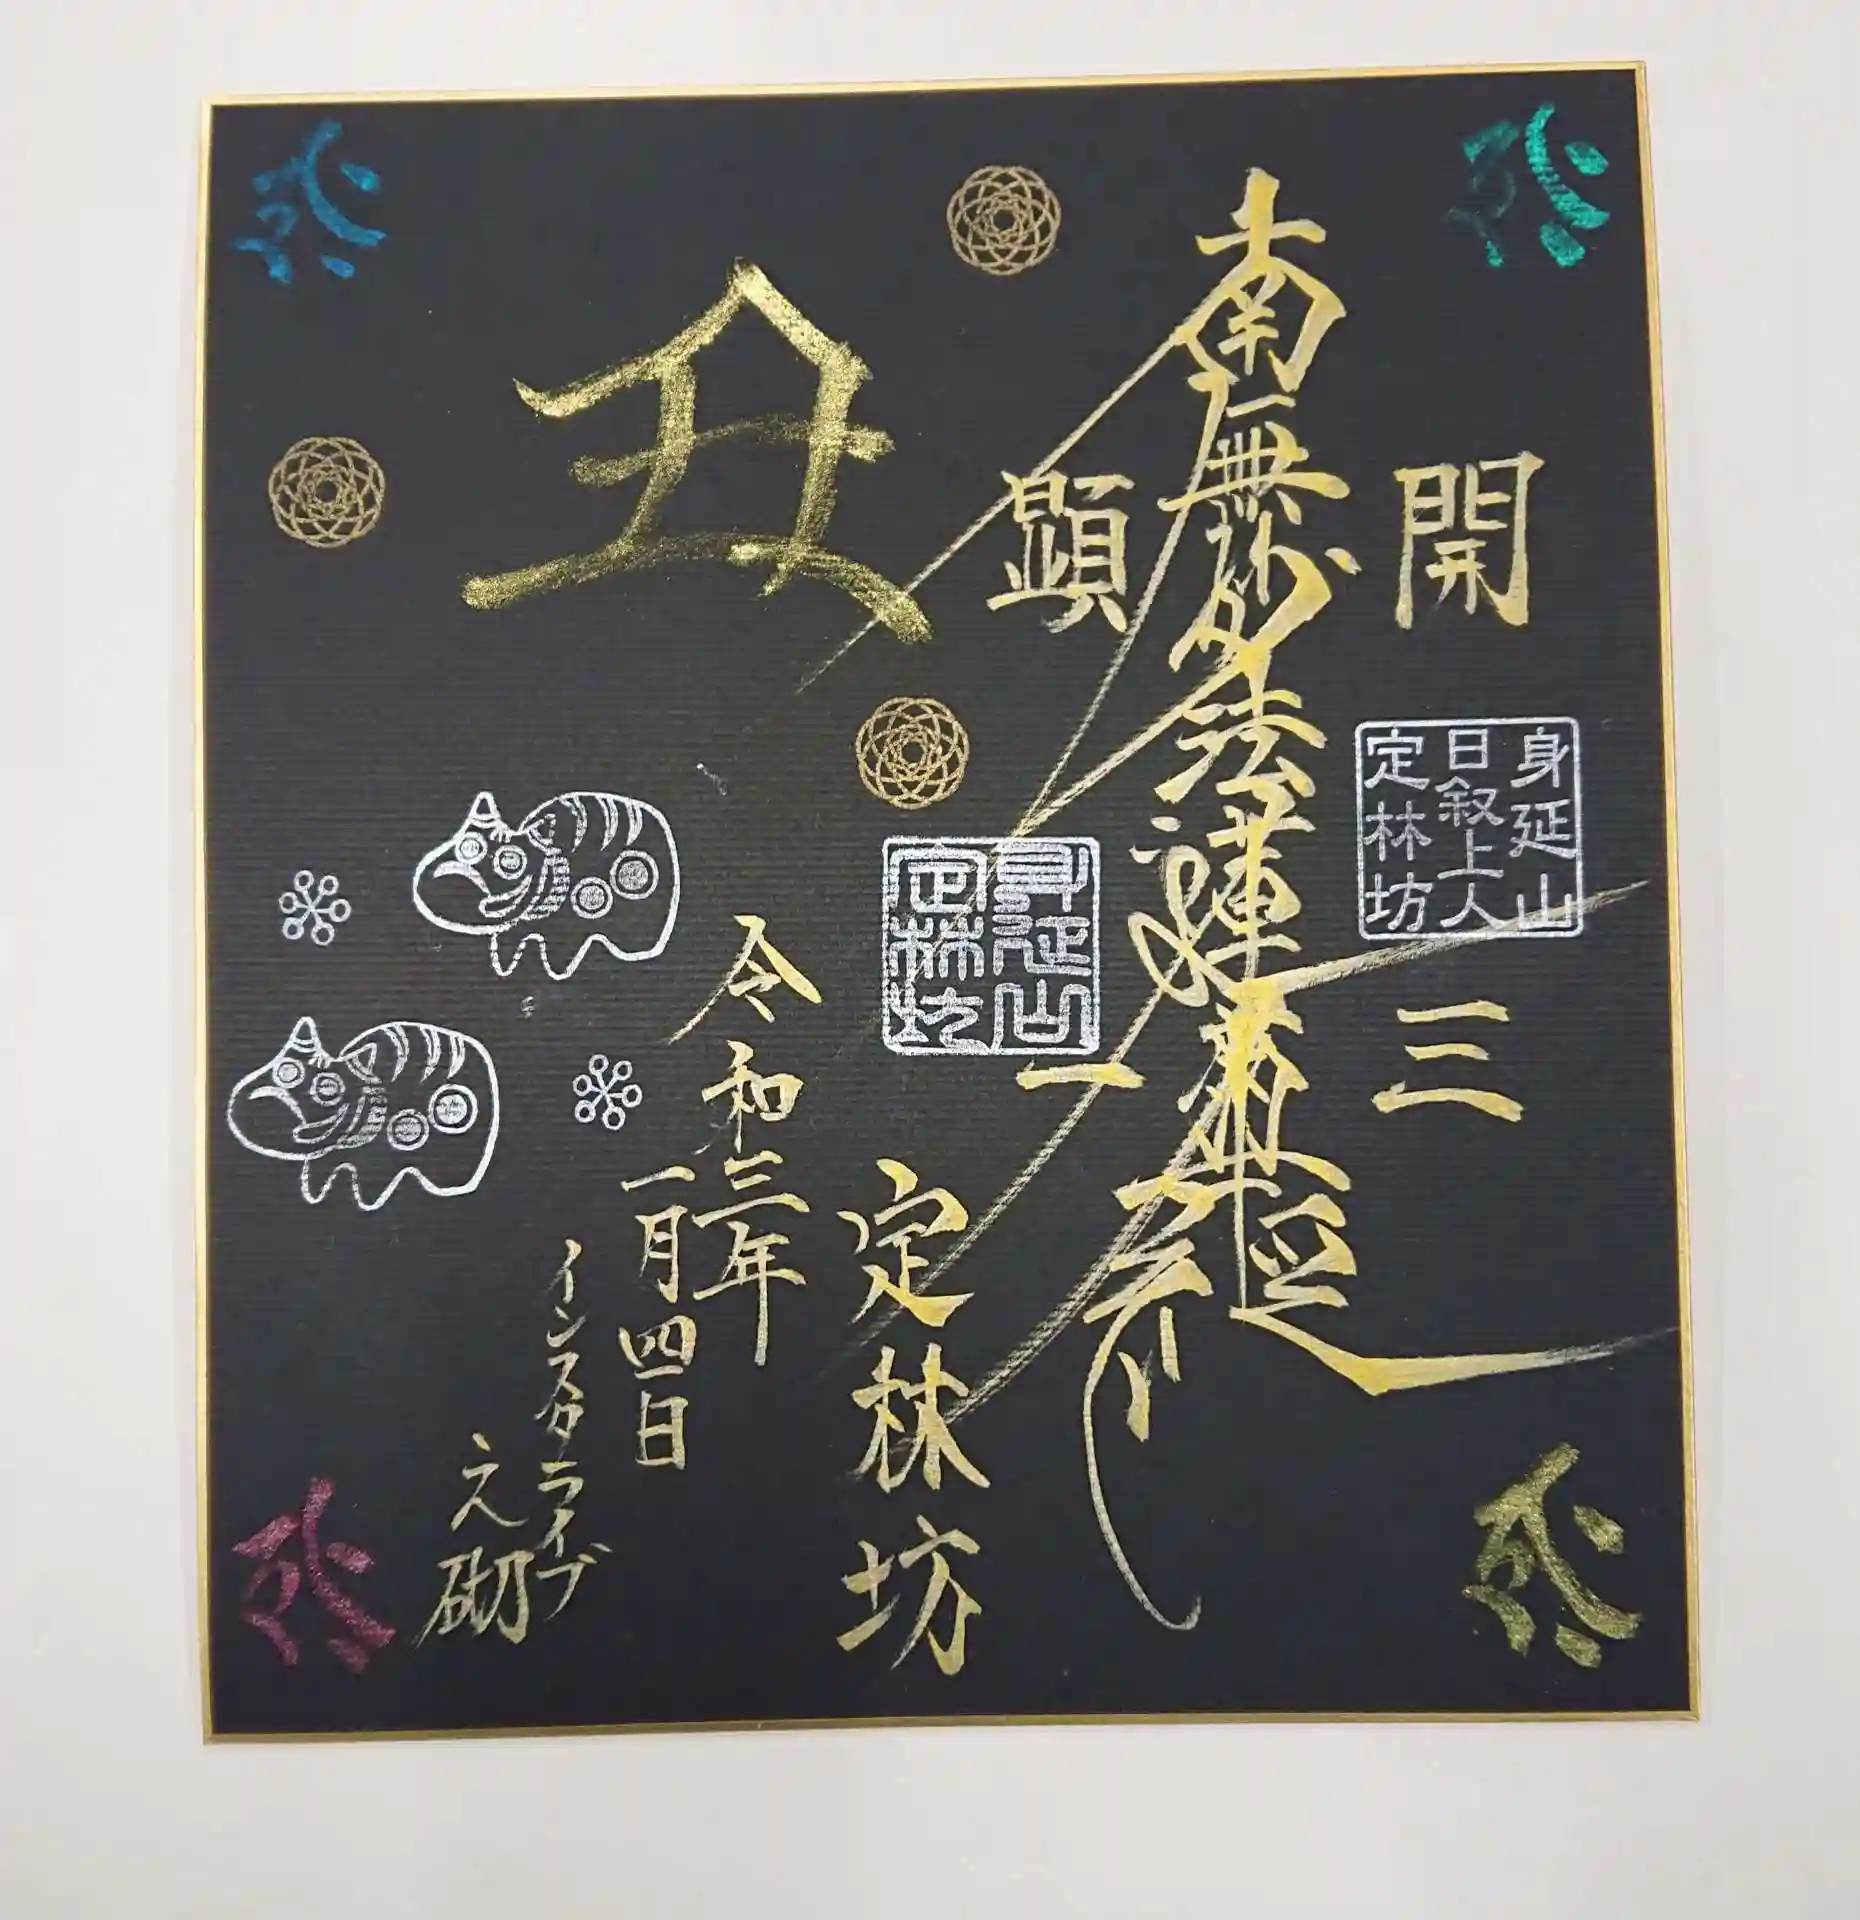 開三
南無妙法蓮華経
顕一
身延山
日叙上人
定林坊
身延山
定林坊
定林坊
丑
令和三年
一月四日
インスタライブ
之砌